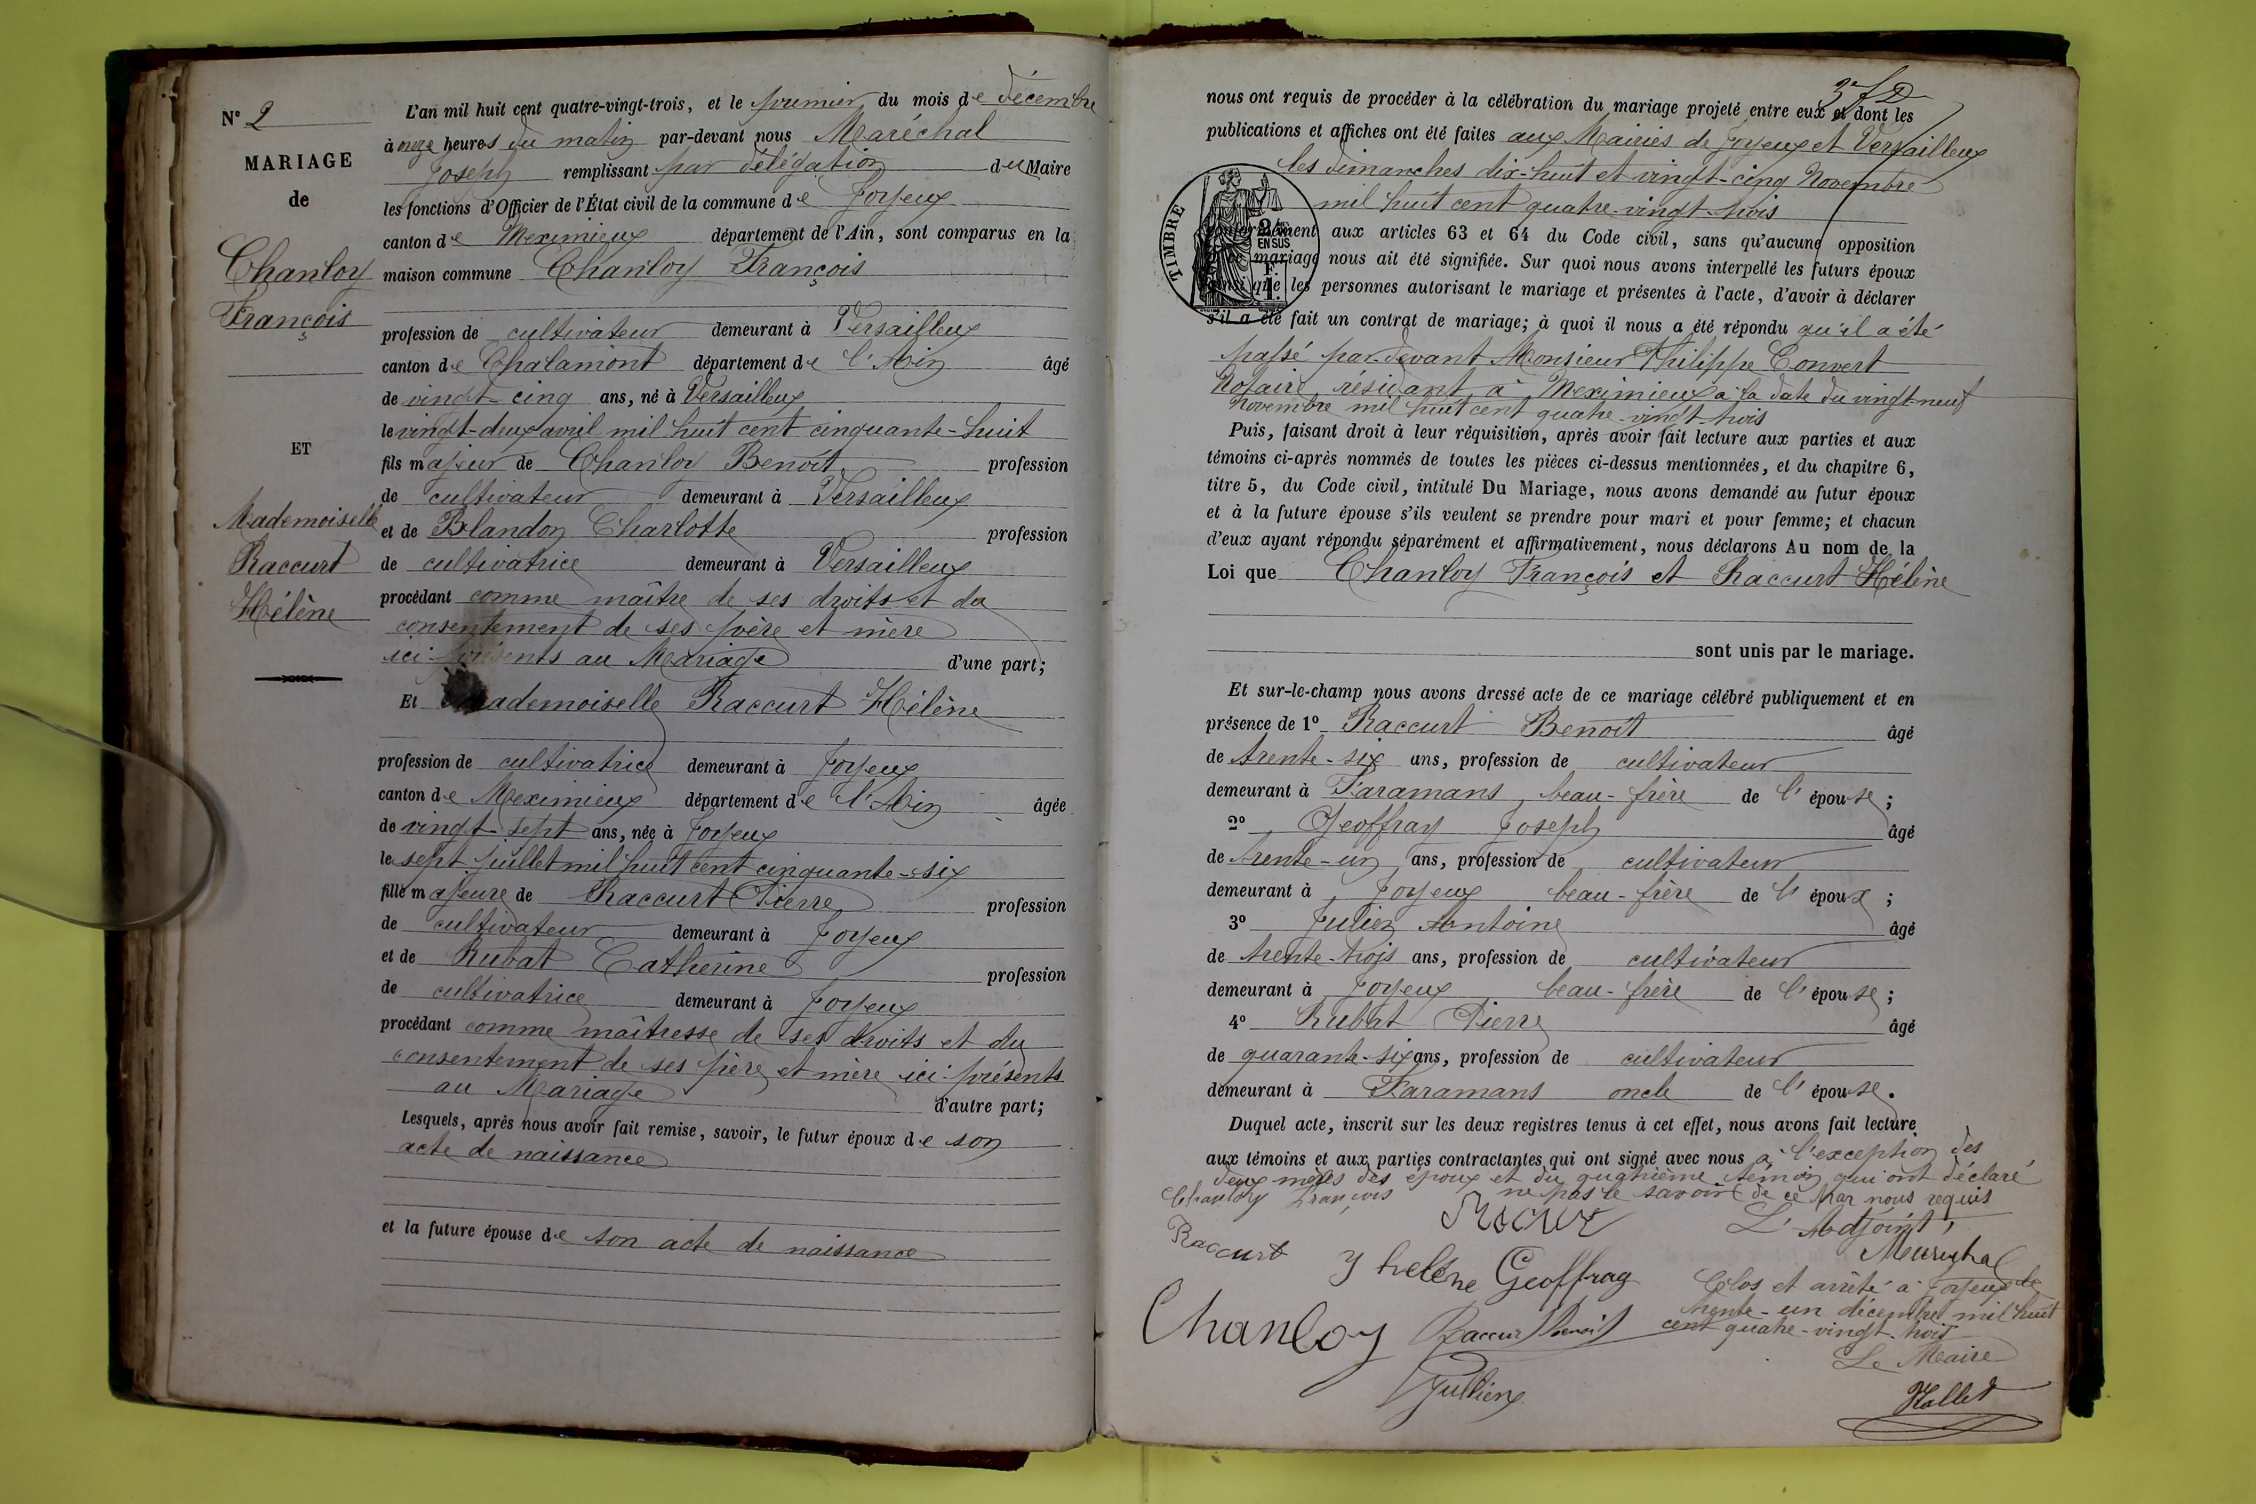 N° 2
MARIAGE
de
Chanloy
François
ET
Mademoiselle
Raccurt
Hélène
L'an mil huit cent quatre-vingt-trois, et le premier du mois de décembre
à onze heures du matin par-devant nous Maréchal
Joseph remplissant par délégation du Maire
les fonctions d'Officier de l'État civil de la commune de Joyeux
canton de Meximieux département de l'Ain, sont comparus en la
maison commune Chanloy François
profession de cultivateur demeurant à Versailleux
canton de Chalamont département de l'Ain âgé
de vingt-cinq ans, né à Versailleux
le vingt-deux avril mil huit cent cinquante-huit
fils majeur de Chanloy Benoît profession
de cultivateur demeurant à Versailleux
et de Blandon Charlotte profession
de cultivatrice demeurant à Versailleux
procédant comme maître de ses droits et du
consentement de ses père et mère
ici présents au Mariage d'une part;
Et Mademoiselle Raccurt Hélène
profession de cultivatrice demeurant à Joyeux
canton de Meximieux département de l'Ain âgée
de vingt-sept ans, née à Joyeux
le sept juillet mil huit cent cinquante-six
fille majeure de Raccurt Pierre profession
de cultivateur demeurant à Joyeux
et de Rubat Catherine profession
de cultivatrice demeurant à Joyeux
procédant comme maîtresse de ses droits et du
consentement de ses père et mère ici présents
au Mariage d'autre part;
Lesquels, après nous avoir fait remise, savoir, le futur époux de son
acte de naissance
et la future épouse de son acte de naissance
nous ont requis de procéder à la célébration du mariage projeté entre eux et dont les
publications et affiches ont été faites aux Mairies de Joyeux et Versailleux
les dimanches dix-huit et vingt-cinq Novembre
mil huit cent quatre-vingt-trois
TIMBRE
EN SUS
conformément aux articles 63 et 64 du Code civil, sans qu'aucune opposition
mariage nous ait été signifiée. Sur quoi nous avons interpellé les futurs époux
que les personnes autorisant le mariage et présentes à l'acte, d'avoir à déclarer
s'il a été fait un contrat de mariage; à quoi il nous a été répondu qu'il a été
passé par-devant Monsieur Philippe Convert
Notaire résidant à Meximieux à la date du vingt-neuf
Novembre mil huit cent quatre-vingt-trois
Puis, faisant droit à leur réquisition, après avoir fait lecture aux parties et aux
témoins ci-après nommés de toutes les pièces ci-dessus mentionnées, et du chapitre 6,
titre 5, du Code civil, intitulé Du Mariage, nous avons demandé au futur époux
et à la future épouse s'ils veulent se prendre pour mari et pour femme; et chacun
d'eux ayant répondu séparément et affirmativement, nous déclarons Au nom de la
Loi que Chanloy François et Raccurt Hélène
sont unis par le mariage.
Et sur-le-champ nous avons dressé acte de ce mariage célébré publiquement et en
présence de 1° Raccurt Benoît âgé
de trente-six ans, profession de cultivateur
demeurant à Faramans, beau-frère de l'épouse;
2° Geoffray Joseph âgé
de trente-un ans, profession de cultivateur
demeurant à Joyeux beau-frère de l'époux;
3° Julien Antoine âgé
de trente-trois ans, profession de cultivateur
demeurant à Joyeux beau-frère de l'épouse;
4° Rubat Pierre âgé
de quarante-six ans, profession de cultivateur
demeurant à Faramans oncle de l'épouse.
Duquel acte, inscrit sur les deux registres tenus à cet effet, nous avons fait lecture
aux témoins et aux parties contractantes qui ont signé avec nous à l'exception des
deux mères des époux et du quatrième témoin qui ont déclaré
ne pas le savoir de ce par nous requis
Chanloy François
L'Adjoint,
Maréchal
Raccurt
helène Geoffray
Clos et arrêté à Joyeux le
trente-un décembre mil huit
cent quatre-vingt-trois
Chanloy Raccurt benoit
Le Maire
Jullien